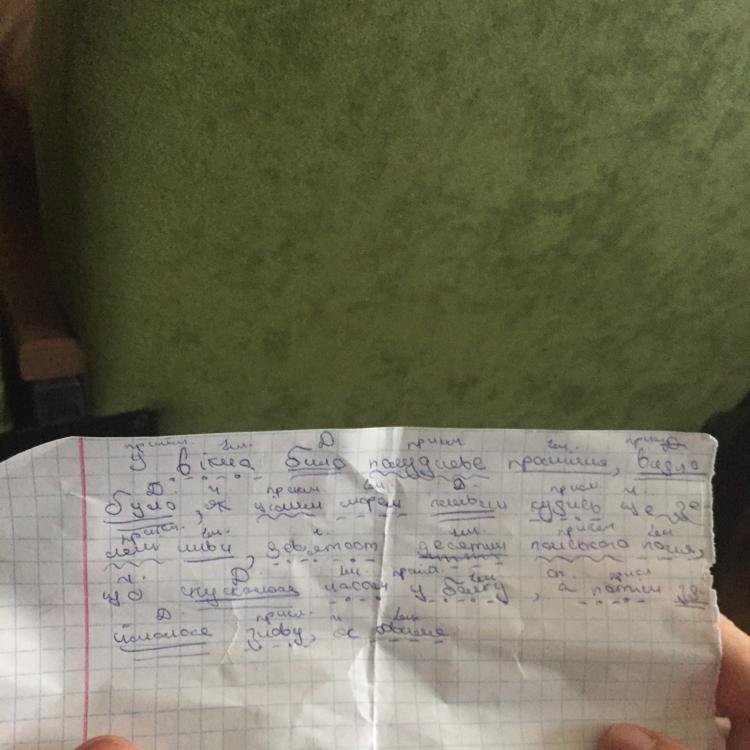 прийм. ім. Д прикм ім. присл
У вікна било полуднєве проміння, видно
Д. ч прикм ім. Д присл ч.
було, як цілим морем пливли кудись ще зе-
ім. ч. ім. прикм ім
лені ниви, десятин панського поля,
ч. Д ім. прийм. ім сп. присл
що спускалося часом у балку, а потім зді-
Д. присл. ч ім
ймалося знову, як